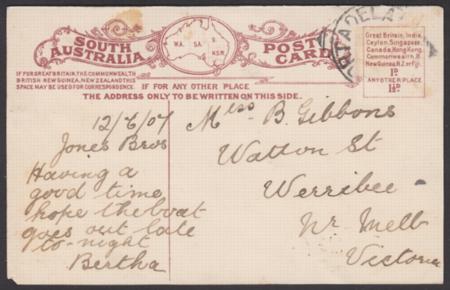 SOUTH AUSTRALIA
W.A. S.A.
N.S.W.
POST CARD
IF FOR GREAT BRITAIN, THE COMMONWEALTH,
BRITISH NEW GUINEA, NEW ZEALAND THIS
SPACE MAY BE USED FOR CORRESPONDENCE.
IF FOR ANY OTHER PLACE
THE ADDRESS ONLY TO BE WRITTEN ON THIS SIDE.
Great Britain, India,
Ceylon, Singapore,
Canada, Hong Kong,
Commonwealth, B.
New Guinea, N.Z.
1D
ANY OTHER PLACE
1½D
12/6/07
Jones Bros
Having a
good time
hope the boat
goes out late
to-night
Bertha
Miss B. Gibbons
Watton St
Werribee
Nr Melb
Victoria